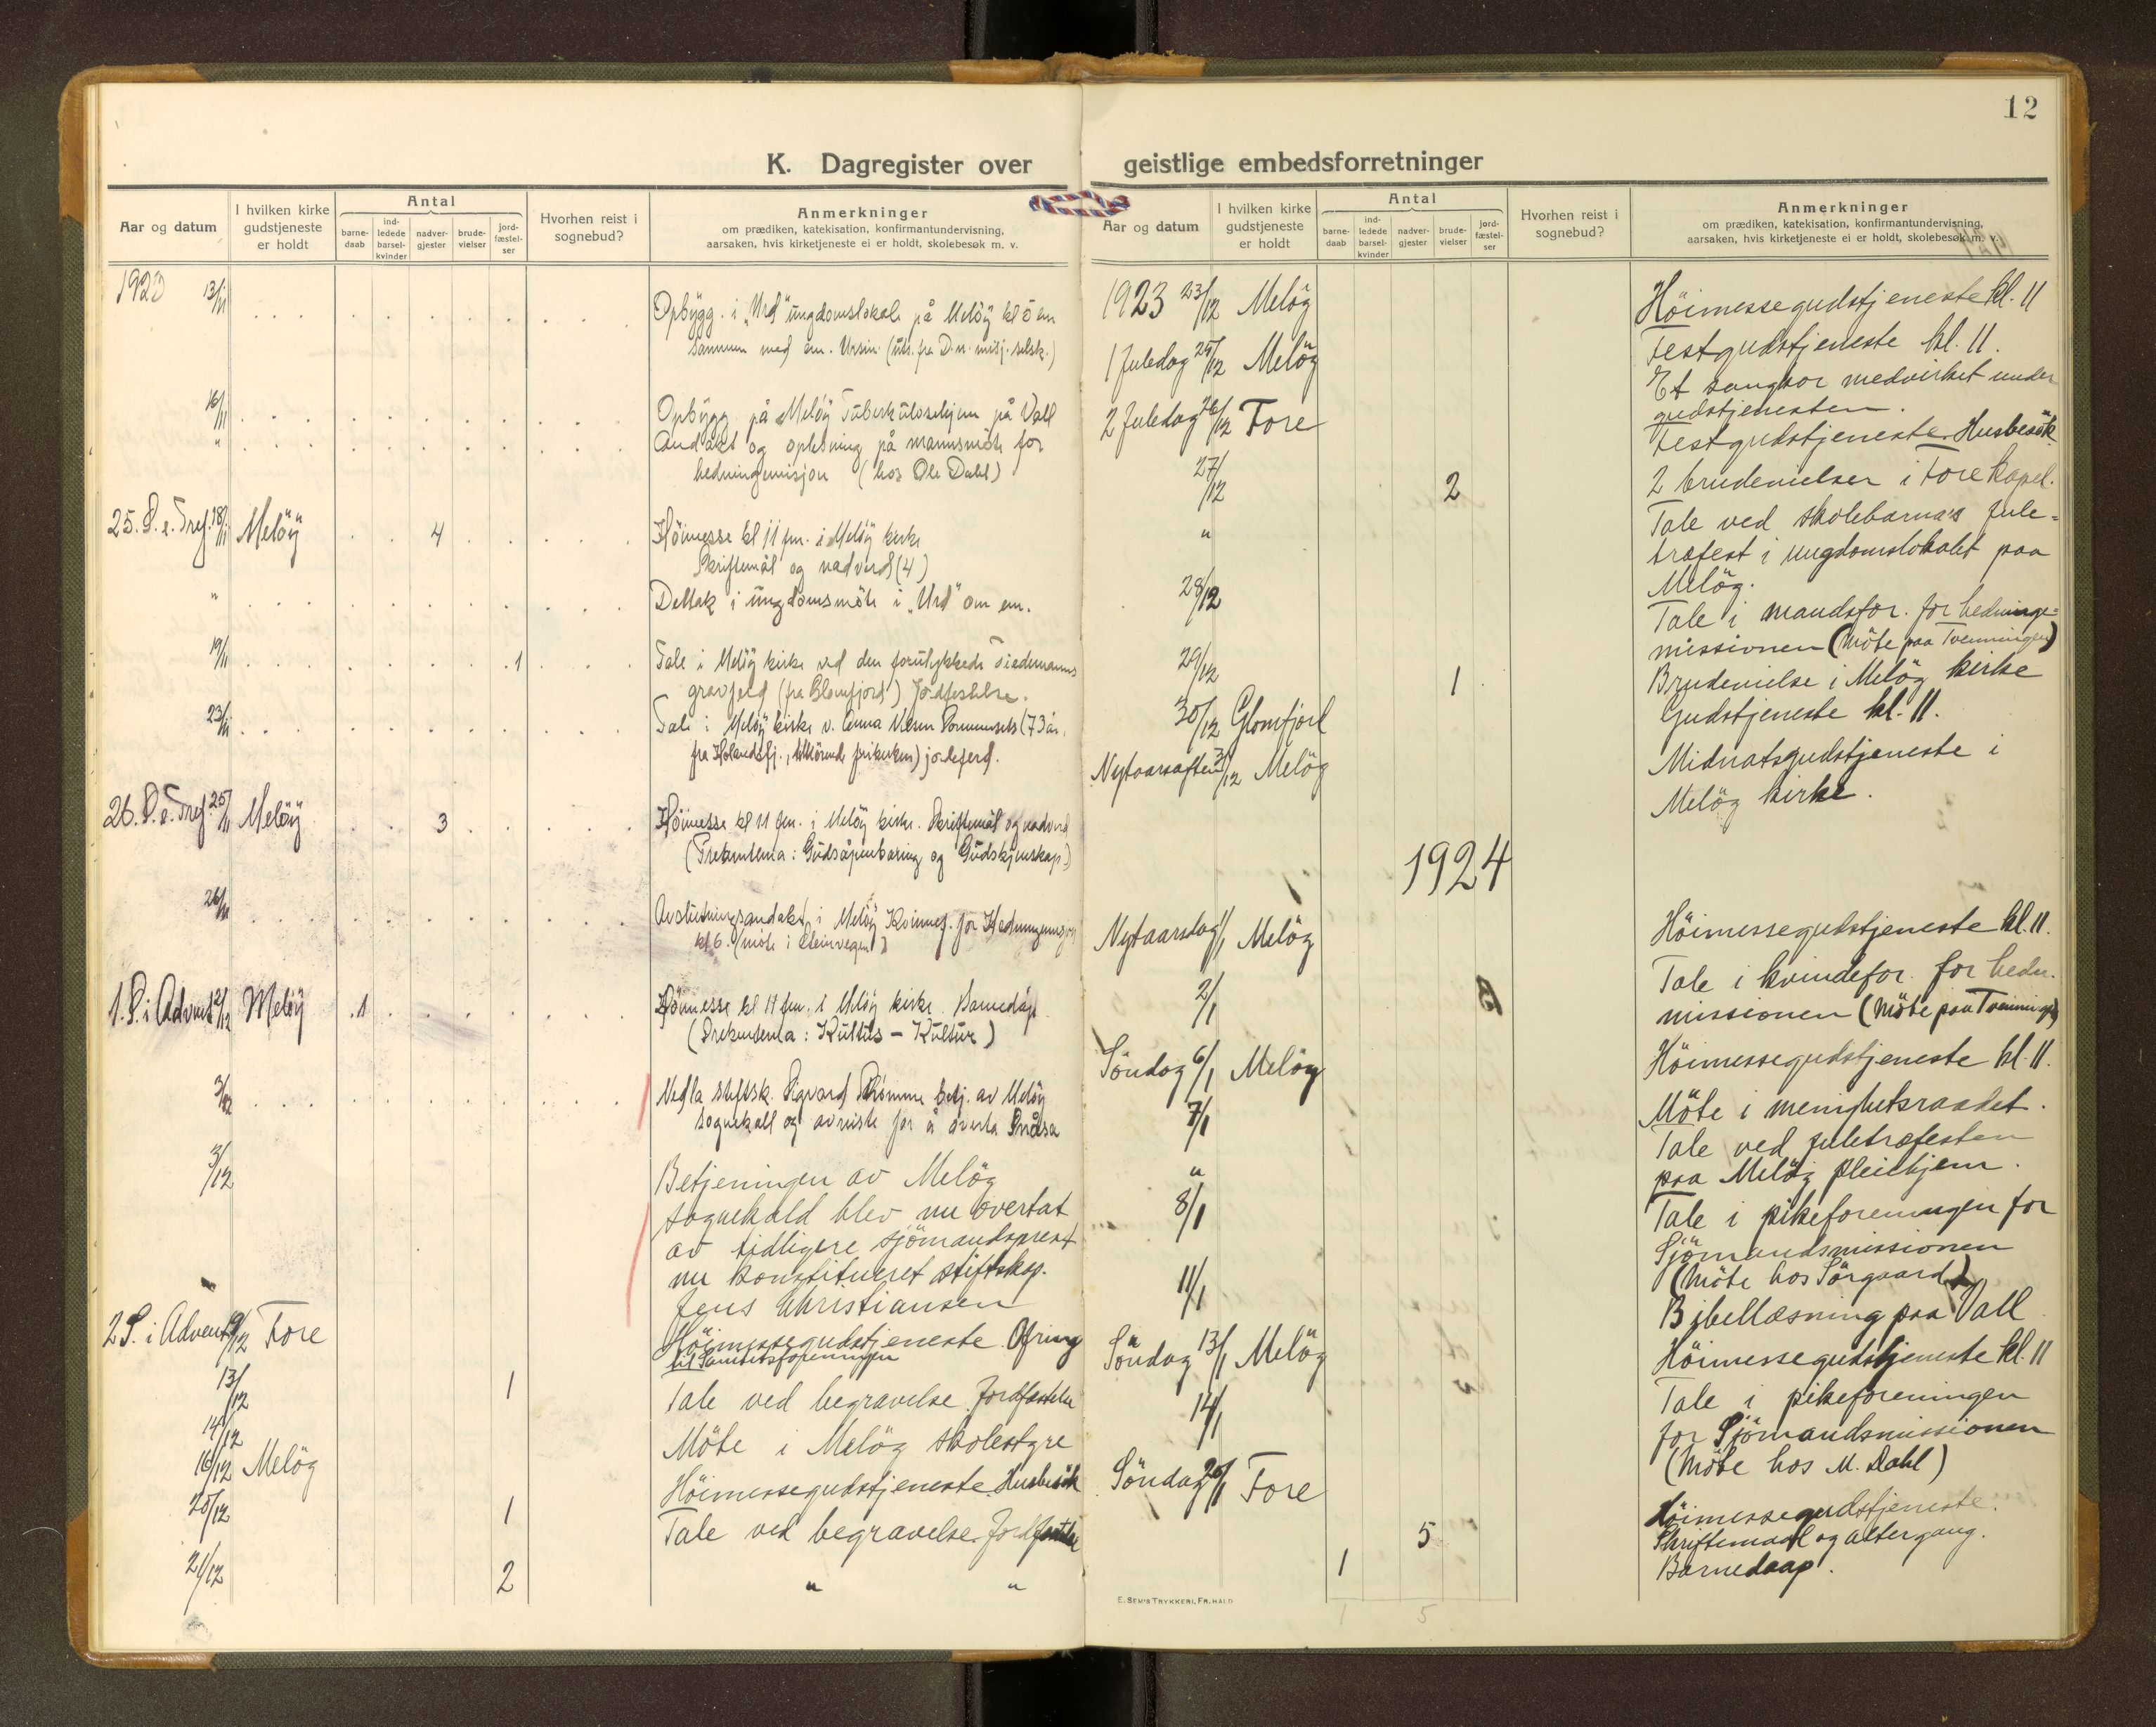 12
K. Dagregister over
Aar og datum
I hvilken kirke gudstjeneste er holdt
Antal
barne-daab
ind-ledede barsel-kvinder
nadver-gjester
brude-vielser
jord-fæstel-ser
Hvorhen reist i sognebud?
Anmerkninger
om prædiken, katekisation, konfirmantundervisning,
aarsaken, hvis kirketjeneste ei er holdt, skolebesøk m. v.
1923 13/11 Opbygg. i "Urd" ungdomslokale på Meløy kl 5 em
sammen med em. Ursin (uts. fra D. n. misj. selsk.)
16/11 Opbygg. på Meløy Tuberkulosehjem på Vall
" Andakt og oplesning på mannsmøte for
hedningemisjon (hos Ole Dahl)
25. S. e. Tref. 18/11 Meløy 4 Høimesse kl 11 fm. i Meløy kirke
Skriftemål og nadverd (4)
" Deltok i ungdomsmøte i "Urd" om em.
19/11 1 Tale i Meløy kirke ved den forulykkede Tiedemanns
gravferd (fra Glomfjord) Jordfestelse.
23/11 Tale i Meløy kirke v. Anna (73 år,
fra Holandsfj., tilhørende frikirken) jordeferd.
26. S. e. Tref. 25/11 Meløy 3 Høimesse kl 11 fm. i Meløy kirke. Skriftemål og nadverd
(Preketema: Gudsåpenbaring og Gudskjennskap.)
26/11 Avslutningsandakt i Meløy Kvinnef. for Hedningemisjon
kl 6. (møte i
1. S. i Advent 2/12 Meløy 1 Høimesse kl 11 fm. i Meløy kirke. Barnedåp.
(Preketema: Kultus – Kultur)
3/12 Nedla stiftsk. Sigvard betj. av Meløy
sognekall og avreiste for å overta Snåsa
3/12 Betjeningen av Meløy
sognekald blev nu overtat
av tidligere sjömandsprest
nu konstitueret stiftskap.
Jens Christiansen
2 S. i Advent 9/12 Fore Höimessegudstjeneste Ofring
til Samemisforeningen
13/12 1 Tale ved begravelse. Jordfæstelse
14/12 Möte i Melöy skolestyre
16/12 Melöy Höimessegudstjeneste. Husbesök
20/12 1 Tale ved begravelse. Jordfæstelse
21/12 2 " "
geistlige embedsforretninger
Aar og datum
I hvilken kirke gudstjeneste er holdt
Antal
barne-daab
ind-ledede barsel-kvinder
nadver-gjester
brude-vielser
jord-fæstel-ser
Hvorhen reist i sognebud?
Anmerkninger
om prædiken, katekisation, konfirmantundervisning,
aarsaken, hvis kirketjeneste ei er holdt, skolebesøk m. v.
1923 23/12 Melöy Höimessegudstjeneste kl. 11
1 Juledag 25/12 Melöy Festgudstjeneste kl. 11.
Et sangkor medvirket under
gudstjenesten.
2 Juledag 26/12 Fore Festgudstjeneste. Husbesök
27/12 2 2 brudevielser i Fore kapel.
" Tale ved skolebarna's jule=
træfest i ungdomslokalet paa
Melöy.
28/12 Tale i mandsfor. for hedninge=
missionen (Möte paa Tvenningen)
29/12 1 Brudevielse i Melöy kirke
30/12 Glomfjord Gudstjeneste kl. 11.
Nytaarsaften 31/12 Melöy Midnatsgudstjeneste i
Melöy kirke.
1924
Nytaarsdag 1/1 Melöy Höimessegudstjeneste kl. 11.
2/1 Tale i kvindefor. for hedn.
missionen (Möte paa Tvenningen)
Söndag 6/1 Melöy Höimessegudstjeneste kl. 11.
7/1 Möte i menighetsraadet.
" Tale ved juletræfesten
paa Melöy pleiehjem.
8/1 Tale i pikeforeningen for
Sjömandsmissionen
(Möte hos Sörgaard)
11/1 Bibellæsning paa Vall
Söndag 13/1 Melöy Höimessegudstjeneste kl. 11
14/1 Tale i pikeforeningen
for Sjömandsmissionen
(Möte hos M. Dahl)
Söndag 20/1 Fore Höimessegudstjeneste.
5 Skriftemaal og altergang.
1 Barnedaap.
E. SEM'S TRYKKERI, FR.HALD
1 5